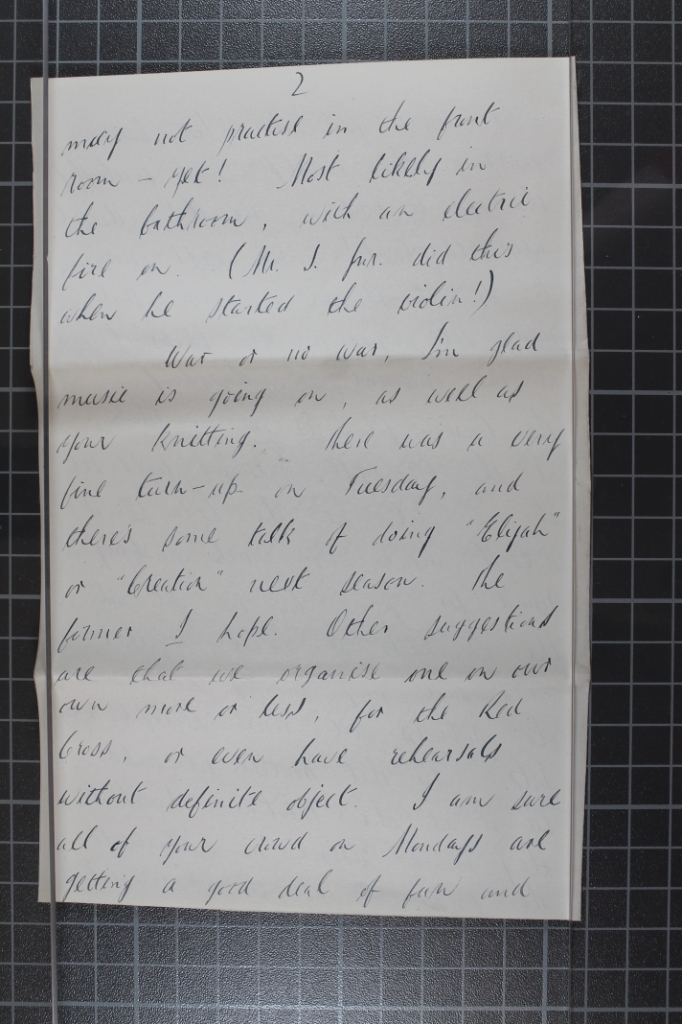 2
may not practise in the front
room – yet! Most likely in
the bathroom, with an electric
fire on. (Mr. S. jnr. did this
when he started the violin!)
War or no war, I'm glad
music is going on, as well as
your knitting. There was a very
fine turn-up on Tuesday, and
there's some talk of doing "Elijah"
or "Creation" next season. The
former I hope. Other suggestions
are that we organise one on our
own more or less, for the Red
Cross, or even have rehearsals
without definite object. I am sure
all of your crowd on Mondays are
getting a good deal of fun and